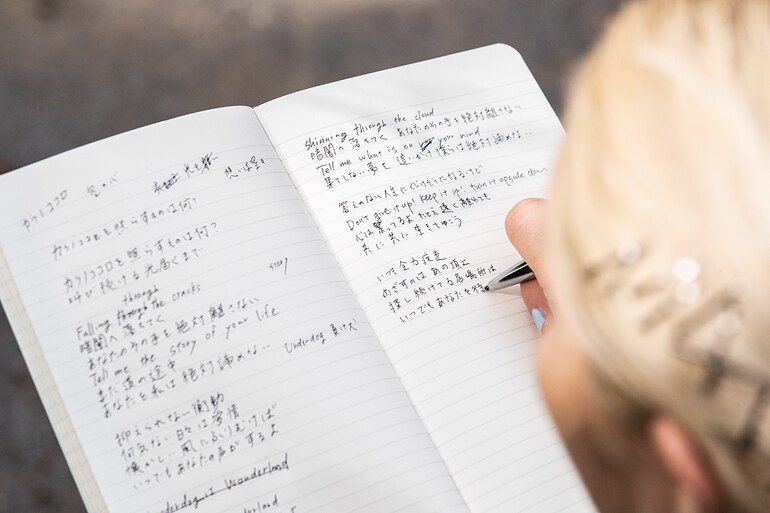 カクノココロ
カクノココロを照らすものは何?
カクノココロを照らすものは何?
叫び続ける 光届くまで
story
Falling through
through the cracks
暗闇へ 落ちてく
あなたのその手を 絶対離さない
Tell me the story of your life
まだ道の途中
あなたを私は 絶対諦めない…
Underdog 負け犬
抑えられない 衝動
何気ない日々は 愛情
懐かし… 風に
いつでもあなたの声がするよ
Underdog is Wonderland
shinning through the cloud
暗闇へ 落ちてく あなたのその手を 絶対離さない
Tell me what is on your mind
果てしない… 夢を 追いかけ 僕らは絶対諦めない…
答えのない人生に
Don't give it up! Keep it up! turn it upside down
心は たとえ 遠く離れても
共に 共に 生きてゆこう
いつも全力疾走
めざすのは あの頂上
探し続けてる居場所は
いつでもあなたを